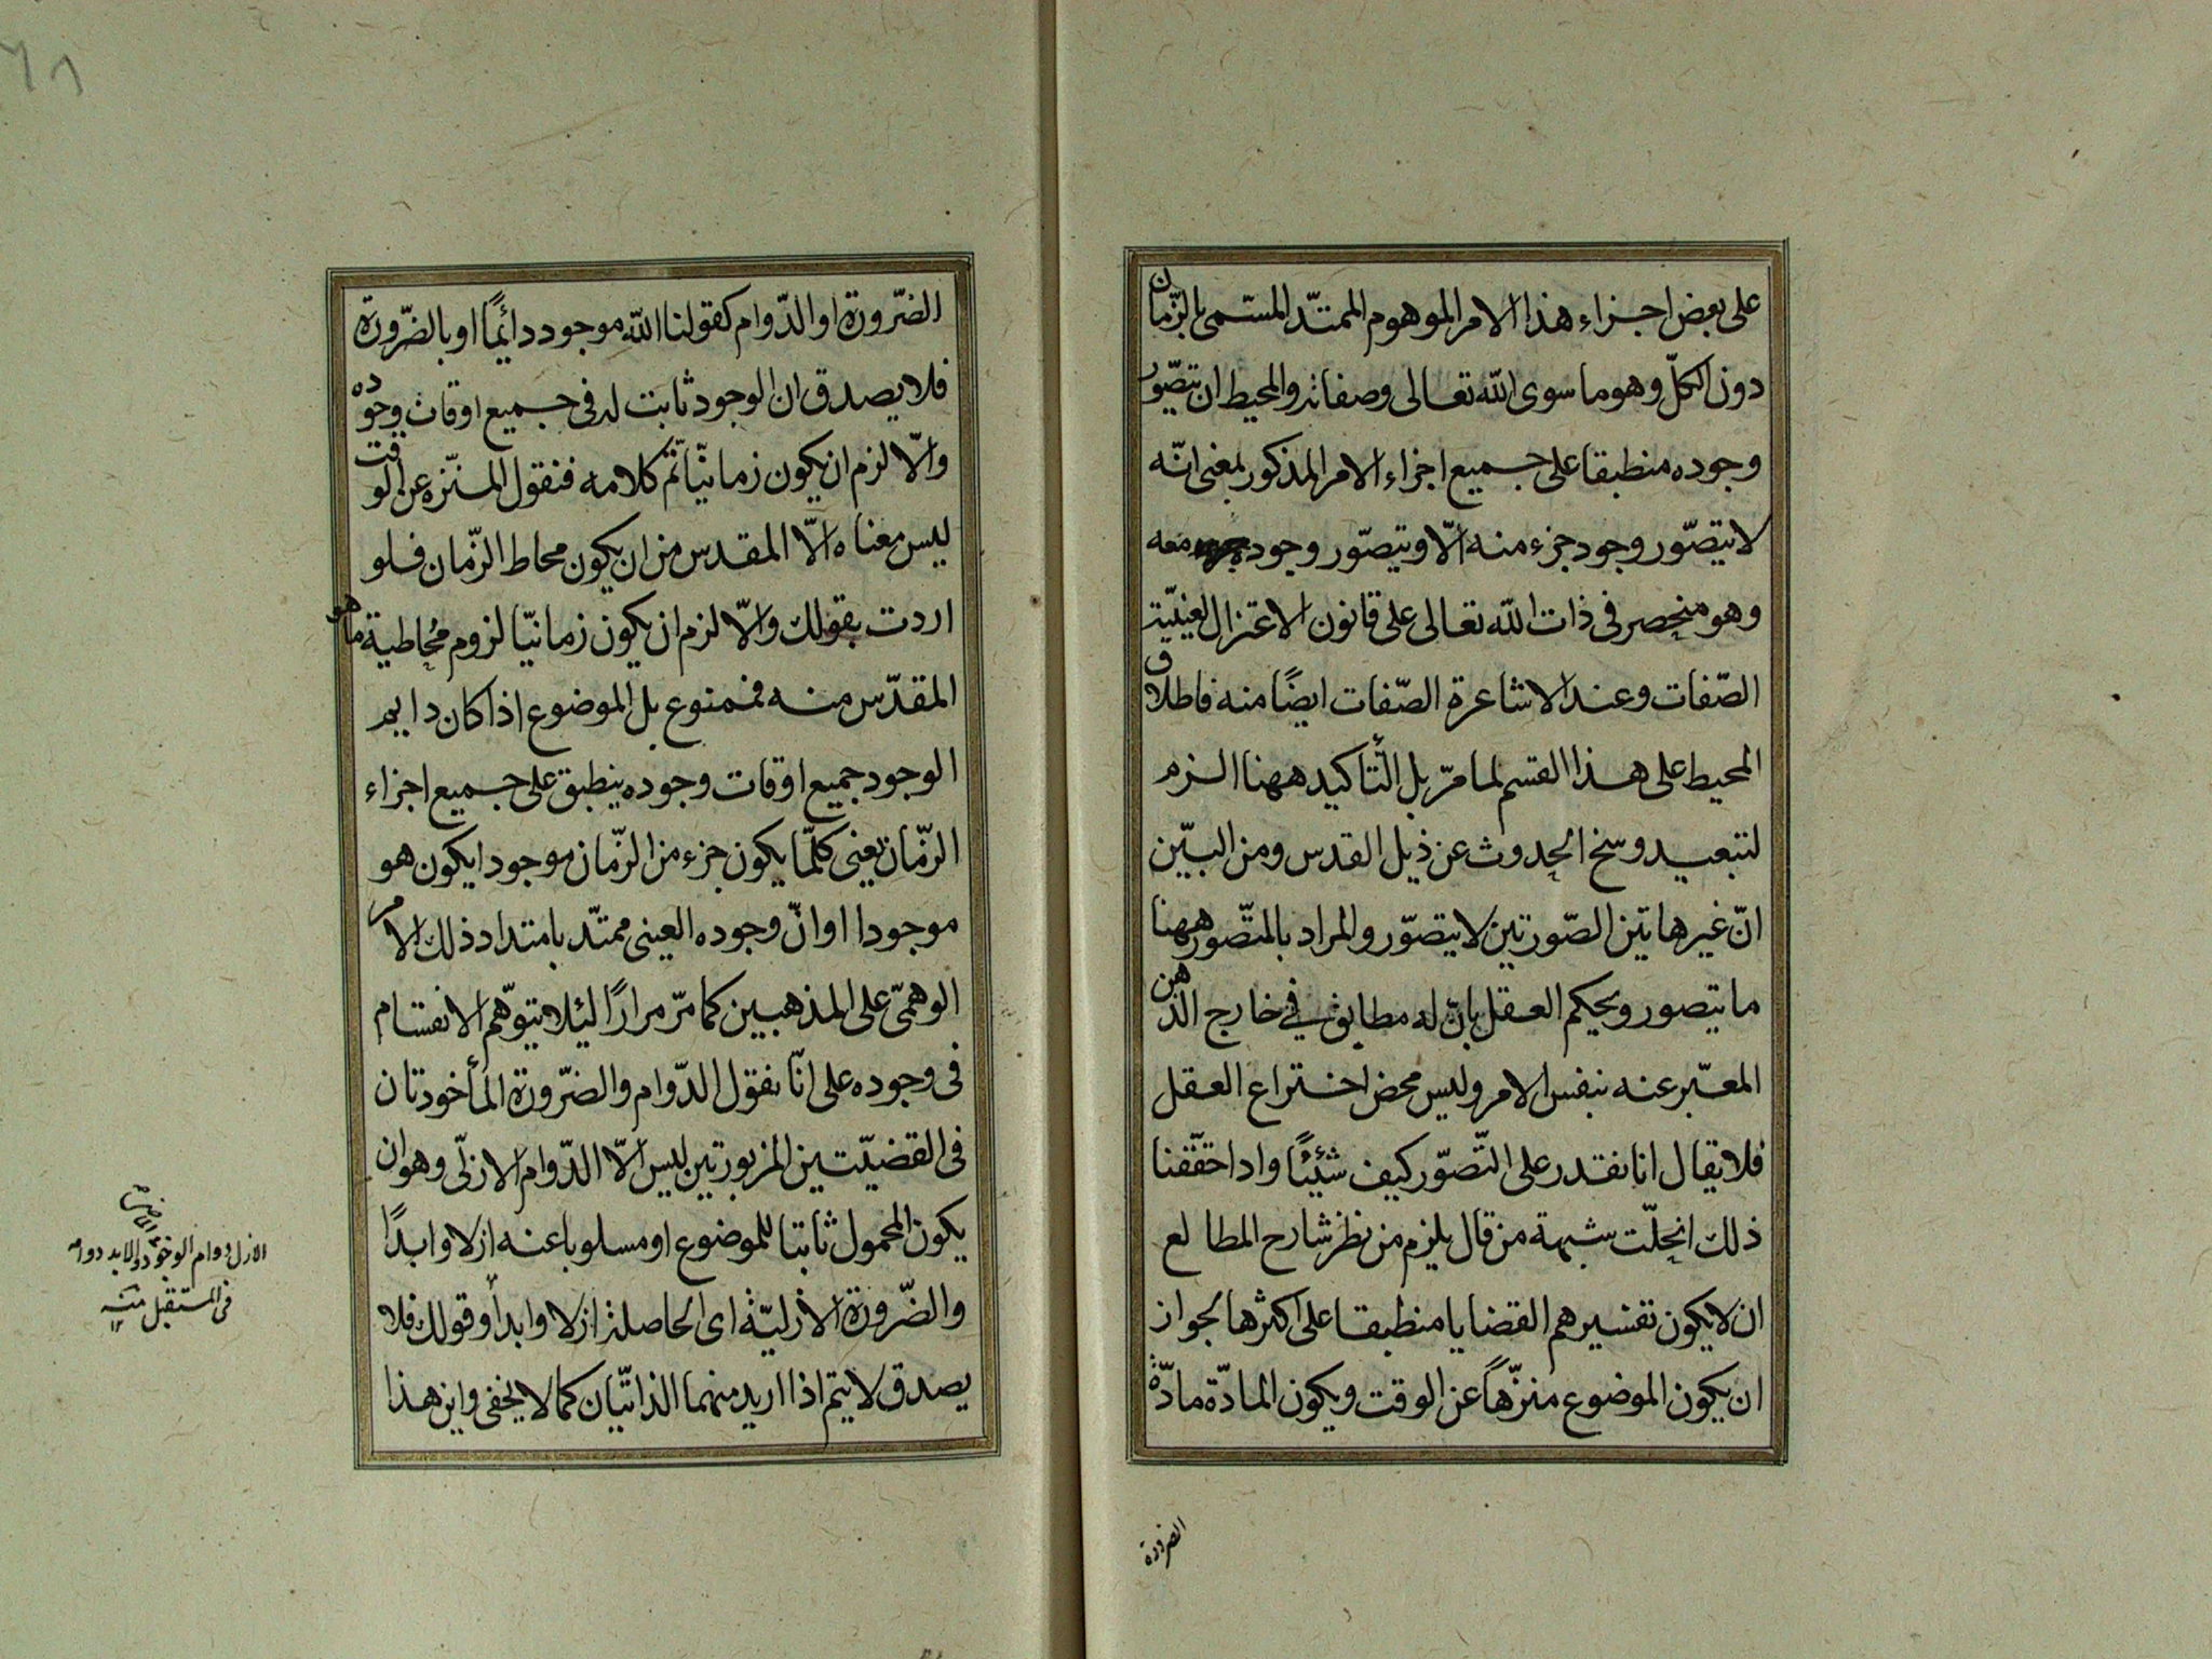 على بعض اجزاء هذا الامر الموهوم الممتدّ المسمى بالزّمان
دون الكلّ وهو ما سوى الله تعالى وصفاته والمحيط ان يتصّور
وجوده منطبقا على جميع اجزاء الامر المذكور بمعنى انّه
لا يتصّور وجود جزء منه الّا ويتصّور وجود معه
وهو منحصر فى ذات الله تعالى على قانون الاعتزال لعينيّة
الصّفات وعند الاشاعرة الصّفات ايضًا منه فاطلاق
المحيط على هذا القسم لما مرّ بل التّأكيد ههنا الزم
لتبعيد وسخ الحدوث عن ذيل القدس ومن البيّن
انّ غير هاتين الصّورتين لا يتصّور والمراد بالمتصّور ههنا
ما يتصور ويحكم العقل بانّ له مطابق فى خارج الذهن
المعبّر عنه بنفس الامر وليس محض اختراع العقل
فلا يقال انا نقدر على التّصوّر كيف شئنا واذا حقّقنا
ذلك انحلّت شبهة من قال يلزم من نظر شارح المطالع
ان لا يكون تفسيرهم القضايا منطبقا على اكثرها لجواز
ان يكون الموضوع منزّهاً عن الوقت ويكون المادّة مادّة
الضرورة
٦٨
الضّرورة او الدّوام كقولنا الله موجود دائمًا او بالضّرورة
فلا يصدق ان الوجود ثابت له فى جميع اوقات وجوده
والّا لزم ان يكون زمانيّا تمّ كلامه فنقول المنزّه عن الوقت
ليس معناه الّا المقدس من ان يكون محاط الزّمان فلو
اردت بقولك والّا لزم ان يكون زمانيّا لزوم محاطية ما هو
المقدّس منه فممنوع بل الموضوع اذا كان دايم
الوجود جميع اوقات وجوده ينطبق على جميع اجزاء
الزّمان يعنى كلّما يكون جزء من الزّمان موجودا يكون هو
موجودا او انّ وجوده العينى ممتدّ بامتداد ذلك الامر
الوهمىّ على المذهبين كما مرّ مرارًا لئلا يتوّهم الانقسام
فى وجوده على انّا نقول الدّوام والضّرورة المأخوذتان
فى القضيّتين المزبورتين ليس الّا الدّوام الازلّى وهو ان
يكون المحمول ثابتا للموضوع او مسلوبا عنه ازلا وابدًا
والضّرورة الأزليّة اى الحاصلة ازلا وابداً وقولك فلا
يصدق لا يتم اذا اريد منهما الذاتيّان كما لا يخفى واين هذا
الازل دوام الوجود والابد دوامه
فى المستقبل منه